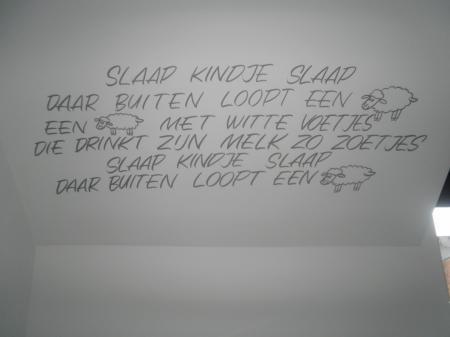 SLAAP KINDJE SLAAP
DAAR BUITEN LOOPT EEN
EEN MET WITTE VOETJES
DIE DRINKT ZIJN MELK ZO ZOETJES
SLAAP KINDJE SLAAP
DAAR BUITEN LOOPT EEN